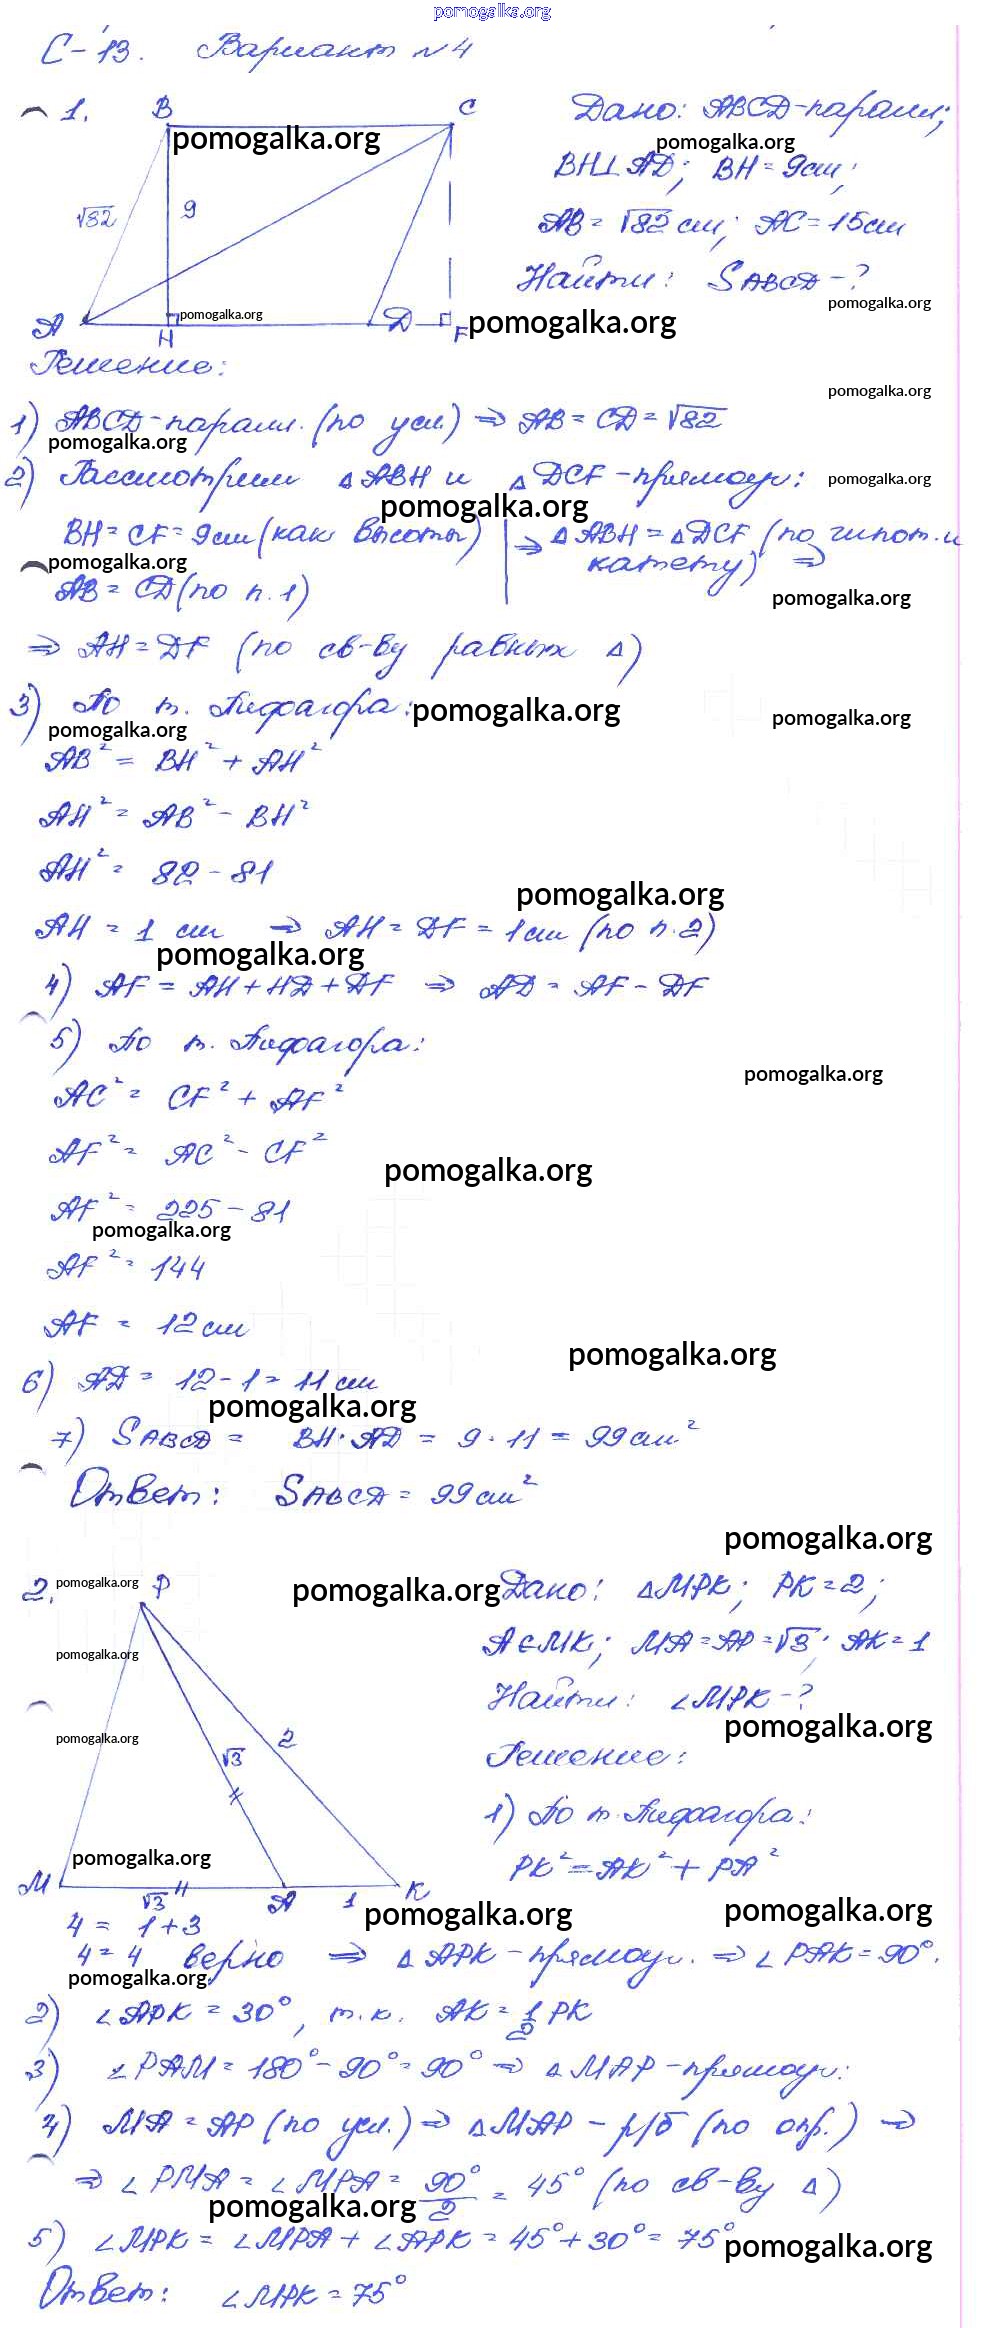 pomogalka.org
С-13. Вариант №4
1. B C Дано: ABCD-паралл;
pomogalka.org pomogalka.org
BH⊥AD; BH=9см;
√82 9 AB=√82 см; AC=15см
Найти: SABCD-?
pomogalka.org
A H D F pomogalka.org pomogalka.org
Решение:
pomogalka.org
1) ABCD-паралл. (по усл.) ⇒ AB=CD=√82
pomogalka.org
2) Рассмотрим △ABH и △DCF-прямоуг:
pomogalka.org
pomogalka.org
BH=CF=9см (как высоты) ⇒ △ABH=△DCF (по гипот. и
pomogalka.org катету) ⇒
AB=CD (по п.1)
pomogalka.org
⇒ AH=DF (по св-ву равных △)
3) По т. Пифагора: pomogalka.org
pomogalka.org pomogalka.org
AB²=BH²+AH²
AH²=AB²-BH²
AH²=82-81
pomogalka.org
AH=1 см ⇒ AH=DF=1см (по п.2)
pomogalka.org
4) AF=AH+HD+DF ⇒ AD=AF-DF
5) По т. Пифагора:
pomogalka.org
AC²=CF²+AF²
AF²=AC²-CF²
pomogalka.org
AF²=225-81
pomogalka.org
AF²=144
AF=12см
pomogalka.org
6) AD=12-1=11см
pomogalka.org
7) SABCD=BH·AD=9·11=99см²
Ответ: SABCD=99см²
pomogalka.org
2. pomogalka.org P pomogalka.org Дано: △MPK; PK=2;
A∈MK; MA=AP=√3; AK=1
pomogalka.org
Найти: ∠MPK-?
pomogalka.org
pomogalka.org
√3 2 Решение:
1) По т. Пифагора:
pomogalka.org PK²=AK²+PA²
M √3 A 1 K
pomogalka.org pomogalka.org
4=1+3
4=4 верно ⇒ △APK-прямоуг. ⇒ ∠PAK=90°.
pomogalka.org
2) ∠APK=30°, т.к. AK=1/2 PK
3) ∠PAM=180°-90°=90° ⇒ △MAP-прямоуг:
4) MA=AP (по усл.) ⇒ △MAP-р/б (по опр.) ⇒
⇒ ∠PMA=∠MPA=90°/2=45° (по св-ву △)
pomogalka.org
5) ∠MPK=∠MPA+∠APK=45°+30°=75°
pomogalka.org
Ответ: ∠MPK=75°